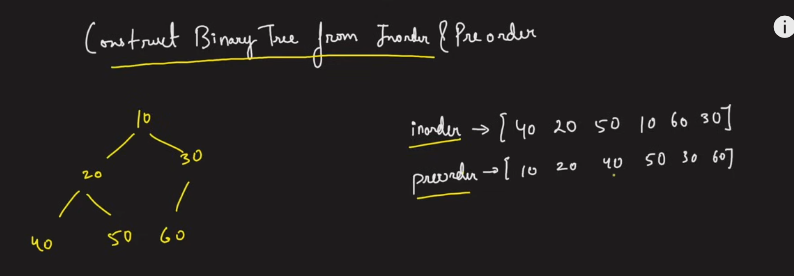 Construct Binary Tree from Inorder & Preorder
10
20 30
40 50 60
inorder → [ 40 20 50 10 60 30 ]
preorder → [ 10 20 40 50 30 60 ]
i